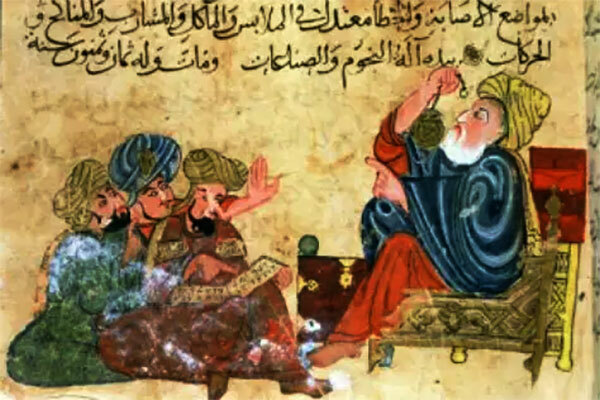 بمواضع الاصابة والخطا معتدل في الملابس والمآكل والمشارب والمناكح و
الحركات بيده آلة النجوم والصناعات ومات وله ثمان سنة